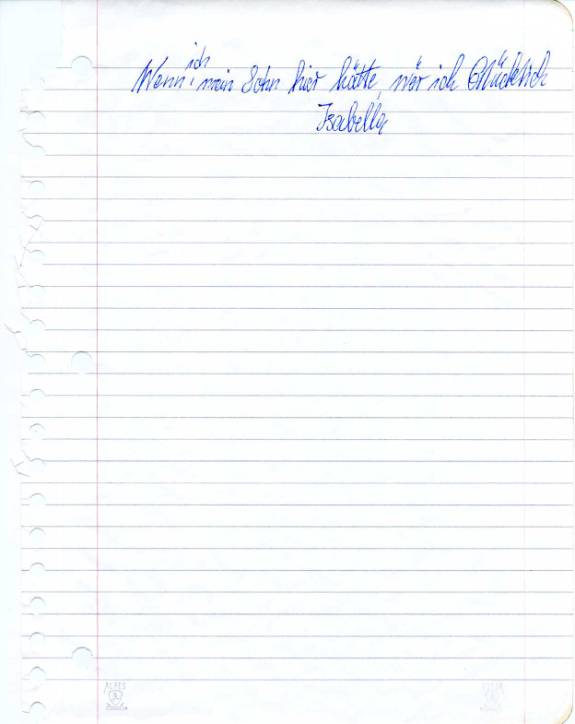 Wenn ich mein Sohn hier hätte, wär ich Glücklich
Isabella